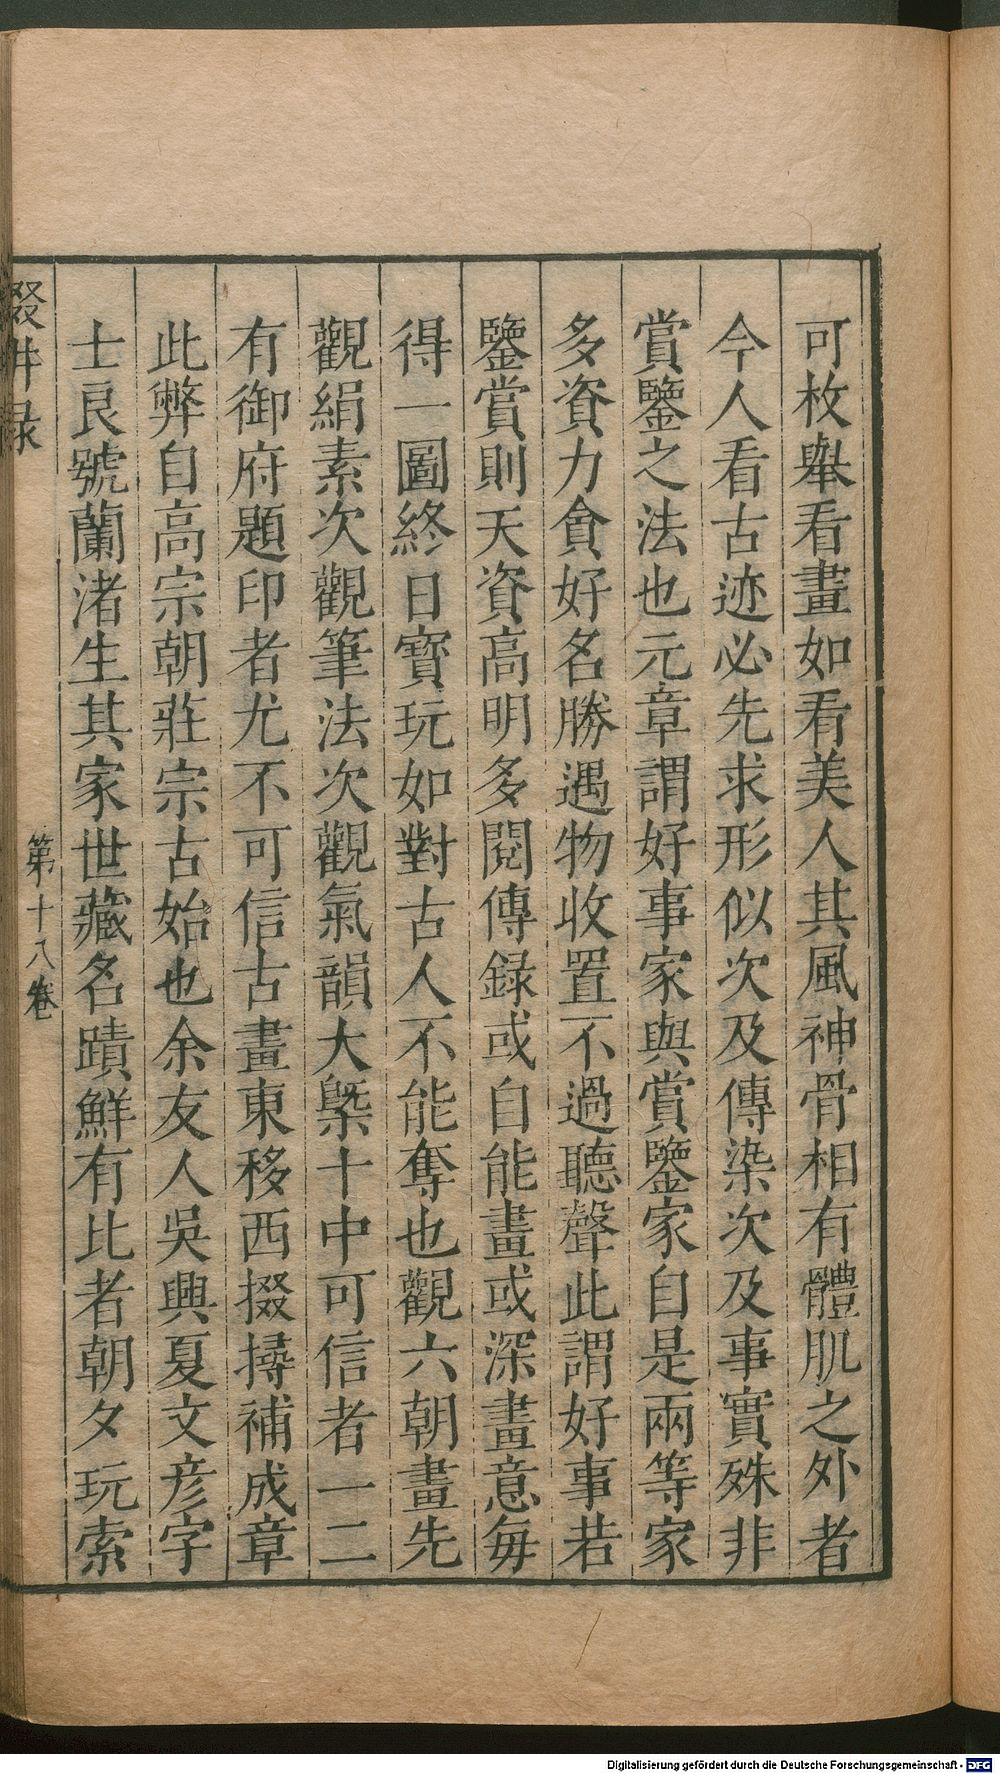 可枚舉看畫如看美人其風神骨相有體肌之外者
今人看古迹必先求形似次及傳染次及事實殊非
賞鑒之法也元章謂好事家與賞鑒家自是兩等家
多資力貪好名勝遇物收置不過聽聲此謂好事若
鑒賞則天資高明多閱傳録或自能畫或深畫意每
得一圖終日寳玩如對古人不能奪也觀六朝畫先
觀絹素次觀筆法次觀氣韻大槩十中可信者一二
有御府題印者尤不可信古畫東移西掇撏補成章
此弊自高宗朝莊宗古始也余友人吳興夏文彥字
士良號蘭渚生其家世藏名蹟鮮有比者朝夕玩索
第十八卷
Digitalisierung gefördert durch die Deutsche Forschungsgemeinschaft - DFG